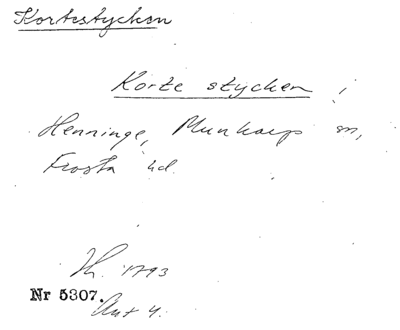 Kortestycken
Korte stycken ;
Henninge, Munkarp sn,
Frosta hd.
1793
Nr 5307.
Akt 4.